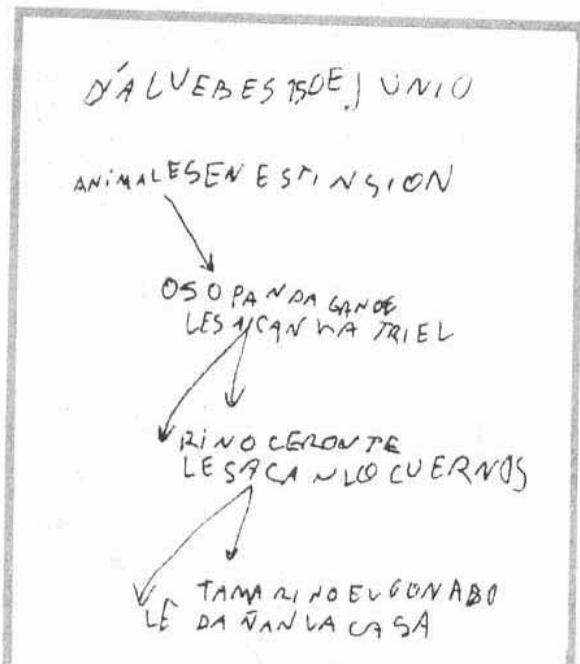 DÍA LUEBES 15 DE JUNIO
ANIMALES EN ESTINSION
OSO PANDA GANDE
LE SACAN LA TRIEL
RINOCERONTE
LE SACAN LO CUERNOS
TAMARINO EL GONABO
LE DAÑAN LA CASA